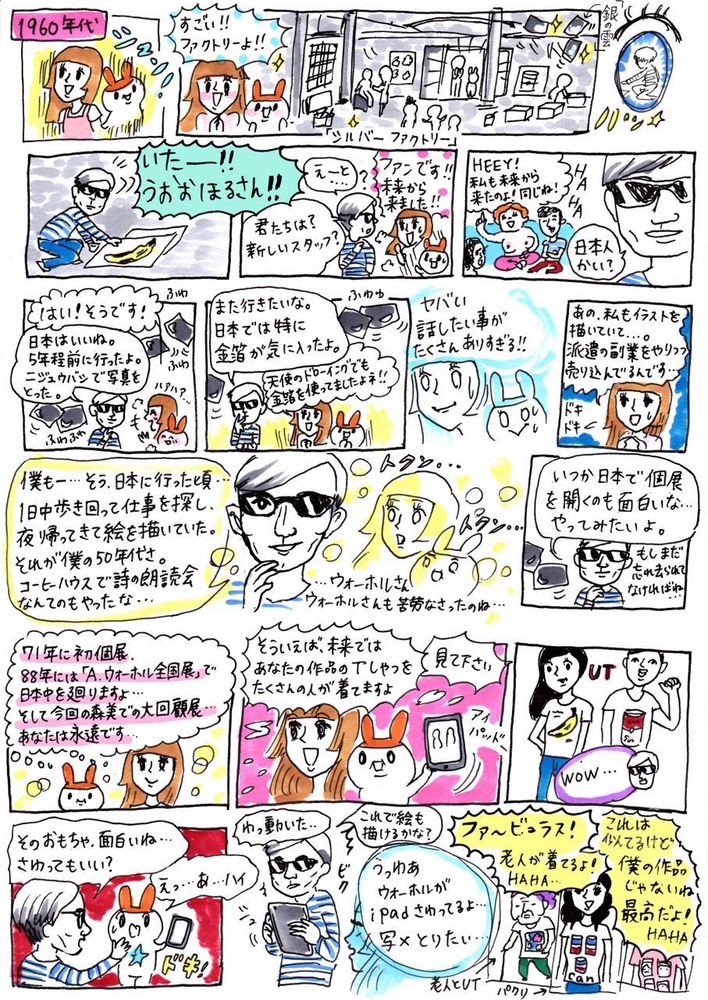 1960年代
すごい!!
ファクトリーよ!!
銀の雲
「シルバーファクトリー」
いたー!!
うぉおほるさん!!
えーと…?
君たちは?
新しいスタッフ?
ファンです!!
未来から
来ました!!
HEEY!
私も未来から
来たのよ!同じね!
HA
HA
日本人
かい?
はい!そうです!
日本はいいね。
5年程前に行ったよ。
ニジュウバシで写真を
とった。
ふゅ
ふゅ
ハァハァ…
も
ふゅふゅ
また行きたいな。
日本では特に
金箔が気に入ったよ。
ふゅゅ
天使のドローイングでも
金箔を使ってましたよネ!!
ヤバい
話したい事が
たくさんありすぎる!!
あの、私もイラストを
描いていて…。
派遣の副業をやりつつ
売り込んでるんです…
ドキ
ドキ
僕も一…そう、日本に行った頃…
1日中歩き回って仕事を探し、
夜帰ってきて絵を描いていた。
それが僕の50年代さ。
コーヒーハウスで詩の朗読会
なんてのもやったな…
トクン…
トクン…
…ウォーホルさん
ウォーホルさんも苦労なさったのね…
いつか日本で個展
を開くのも面白いな…
やってみたいよ。
もしまだ
忘れ去られて
なければね…
71年に初個展.
88年には「A.ウォーホル全国展」で
日本中を廻りますよ…
そして今回の森美での大回顧展…
あなたは永遠です…
そういえば、未来では
あなたの作品のTしゃつを
たくさんの人が着てますよ
見て下さい
アイ
パッド
UT
WOW…
そのおもちゃ、面白いね…
さわってもいい?
えっ…あ…ハイ
ドキ!
わっ動いた…
これで絵も
描けるかな?
ビク
うっわあ
ウォーホルが
ipadさわってるよ…
写×とりたい…
ファ〜ビュラス!
老人が着てるよ!
HAHA…
老人とUT
これは
似てるけど
僕の作品
じゃないね
最高だよ!
HAHA
can
パクリ